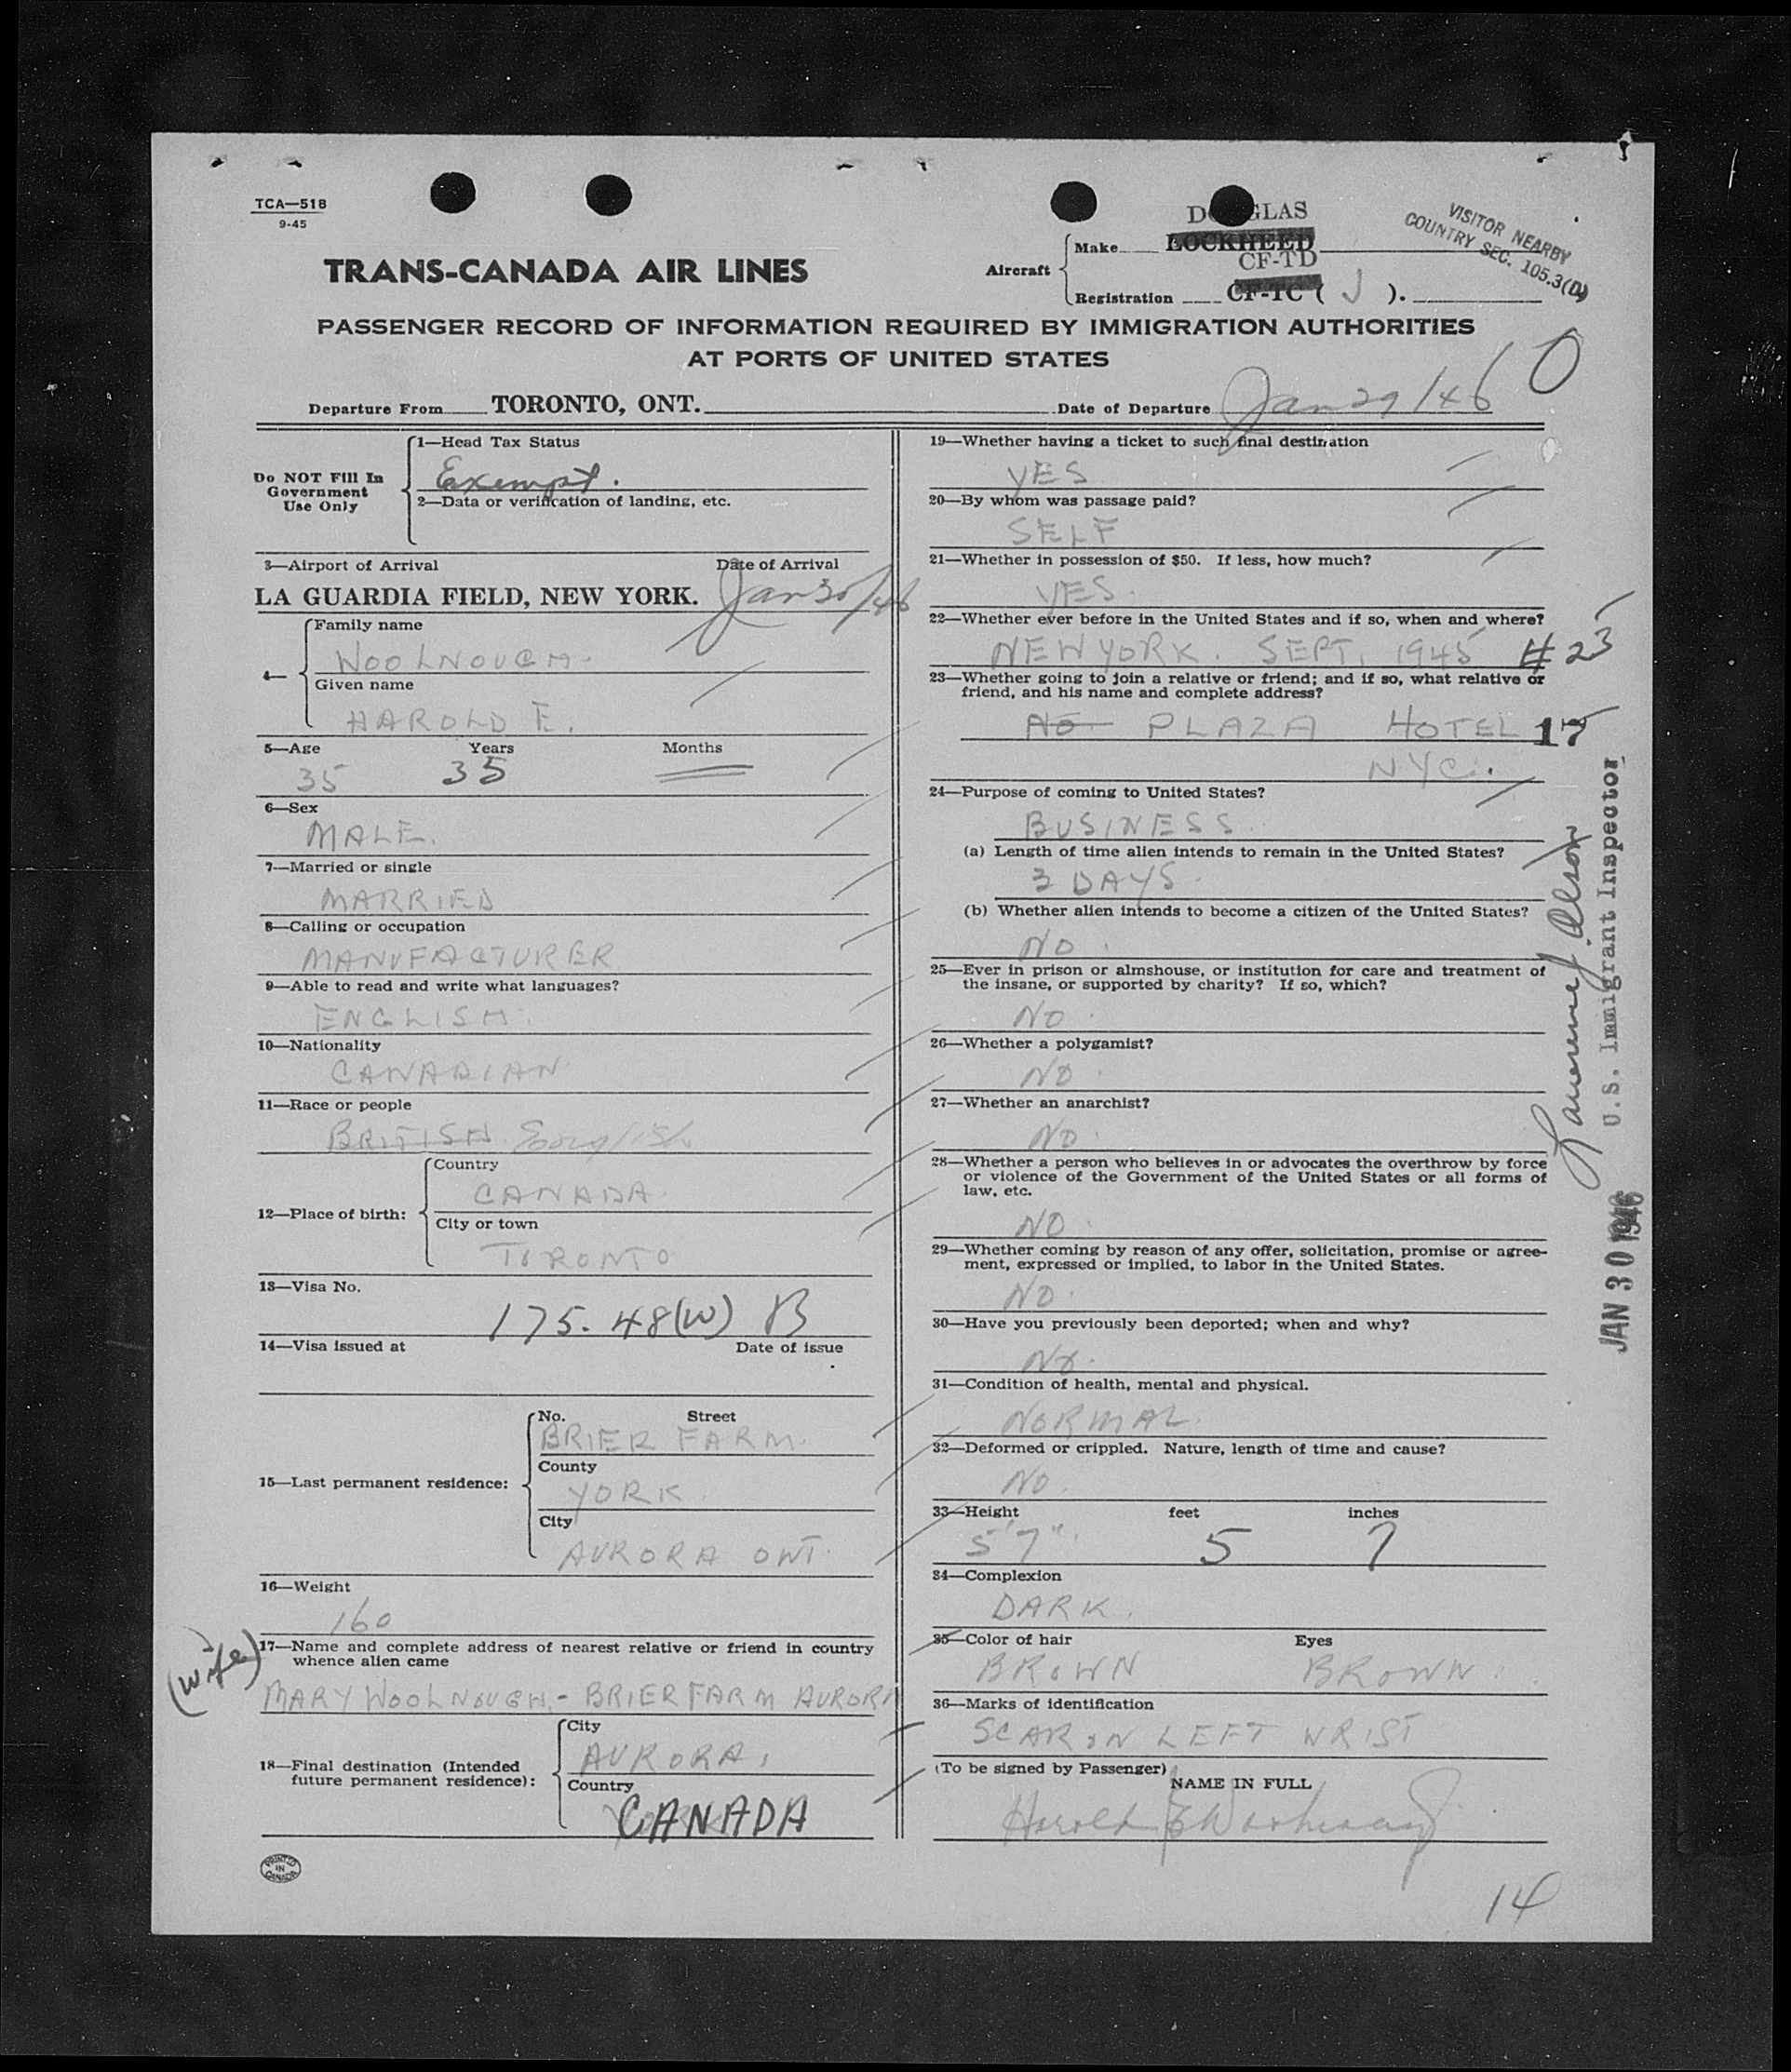 TCA—518
9-45
TRANS-CANADA AIR LINES
Aircraft
Make
DOUGLAS
LOCKHEED
CF-TD
Registration CF-TC ( J ).
VISITOR NEARBY
COUNTRY SEC. 105.3(D)
PASSENGER RECORD OF INFORMATION REQUIRED BY IMMIGRATION AUTHORITIES
AT PORTS OF UNITED STATES
0
Departure From TORONTO, ONT. Date of Departure Jan 29/46
Do NOT Fill In
Government
Use Only
1—Head Tax Status
Exempt.
2—Data or verification of landing, etc.
3—Airport of Arrival Date of Arrival
LA GUARDIA FIELD, NEW YORK. Jan 30/46
4—
Family name
WOOLNOUGH.
Given name
HAROLD E.
5—Age Years Months
35 35
6—Sex
MALE.
7—Married or single
MARRIED
8—Calling or occupation
MANUFACTURER
9—Able to read and write what languages?
ENGLISH.
10—Nationality
CANADIAN
11—Race or people
BRITISH English
12—Place of birth:
Country
CANADA.
City or town
TORONTO
13—Visa No.
175.48(W) B
14—Visa issued at Date of issue
15—Last permanent residence:
No. Street
BRIER FARM.
County
YORK.
City
AURORA ONT.
16—Weight
160
(wife)
17—Name and complete address of nearest relative or friend in country
whence alien came
MARY WOOLNOUGH.- BRIER FARM AURORA
18—Final destination (Intended
future permanent residence):
City
AURORA,
Country
CANADA
PRINTED
IN
CANADA
19—Whether having a ticket to such final destination
YES
20—By whom was passage paid?
SELF
21—Whether in possession of $50. If less, how much?
YES.
22—Whether ever before in the United States and if so, when and where?
NEW YORK. SEPT. 1945 # 23
23—Whether going to join a relative or friend; and if so, what relative or
friend, and his name and complete address?
NO. PLAZA HOTEL 17
NYC.
24—Purpose of coming to United States?
BUSINESS.
(a) Length of time alien intends to remain in the United States?
3 DAYS.
(b) Whether alien intends to become a citizen of the United States?
NO.
25—Ever in prison or almshouse, or institution for care and treatment of
the insane, or supported by charity? If so, which?
NO.
26—Whether a polygamist?
NO.
27—Whether an anarchist?
NO.
28—Whether a person who believes in or advocates the overthrow by force
or violence of the Government of the United States or all forms of
law, etc.
NO.
29—Whether coming by reason of any offer, solicitation, promise or agree-
ment, expressed or implied, to labor in the United States.
NO.
30—Have you previously been deported; when and why?
NO.
31—Condition of health, mental and physical.
NORMAL.
32—Deformed or crippled. Nature, length of time and cause?
NO.
33—Height feet inches
5'7". 5 7
34—Complexion
DARK.
35—Color of hair Eyes
BROWN BROWN.
36—Marks of identification
SCAR ON LEFT WRIST
(To be signed by Passenger)
NAME IN FULL
Harold E Woolnough
14
U.S. Immigrant Inspector
JAN 30 1946